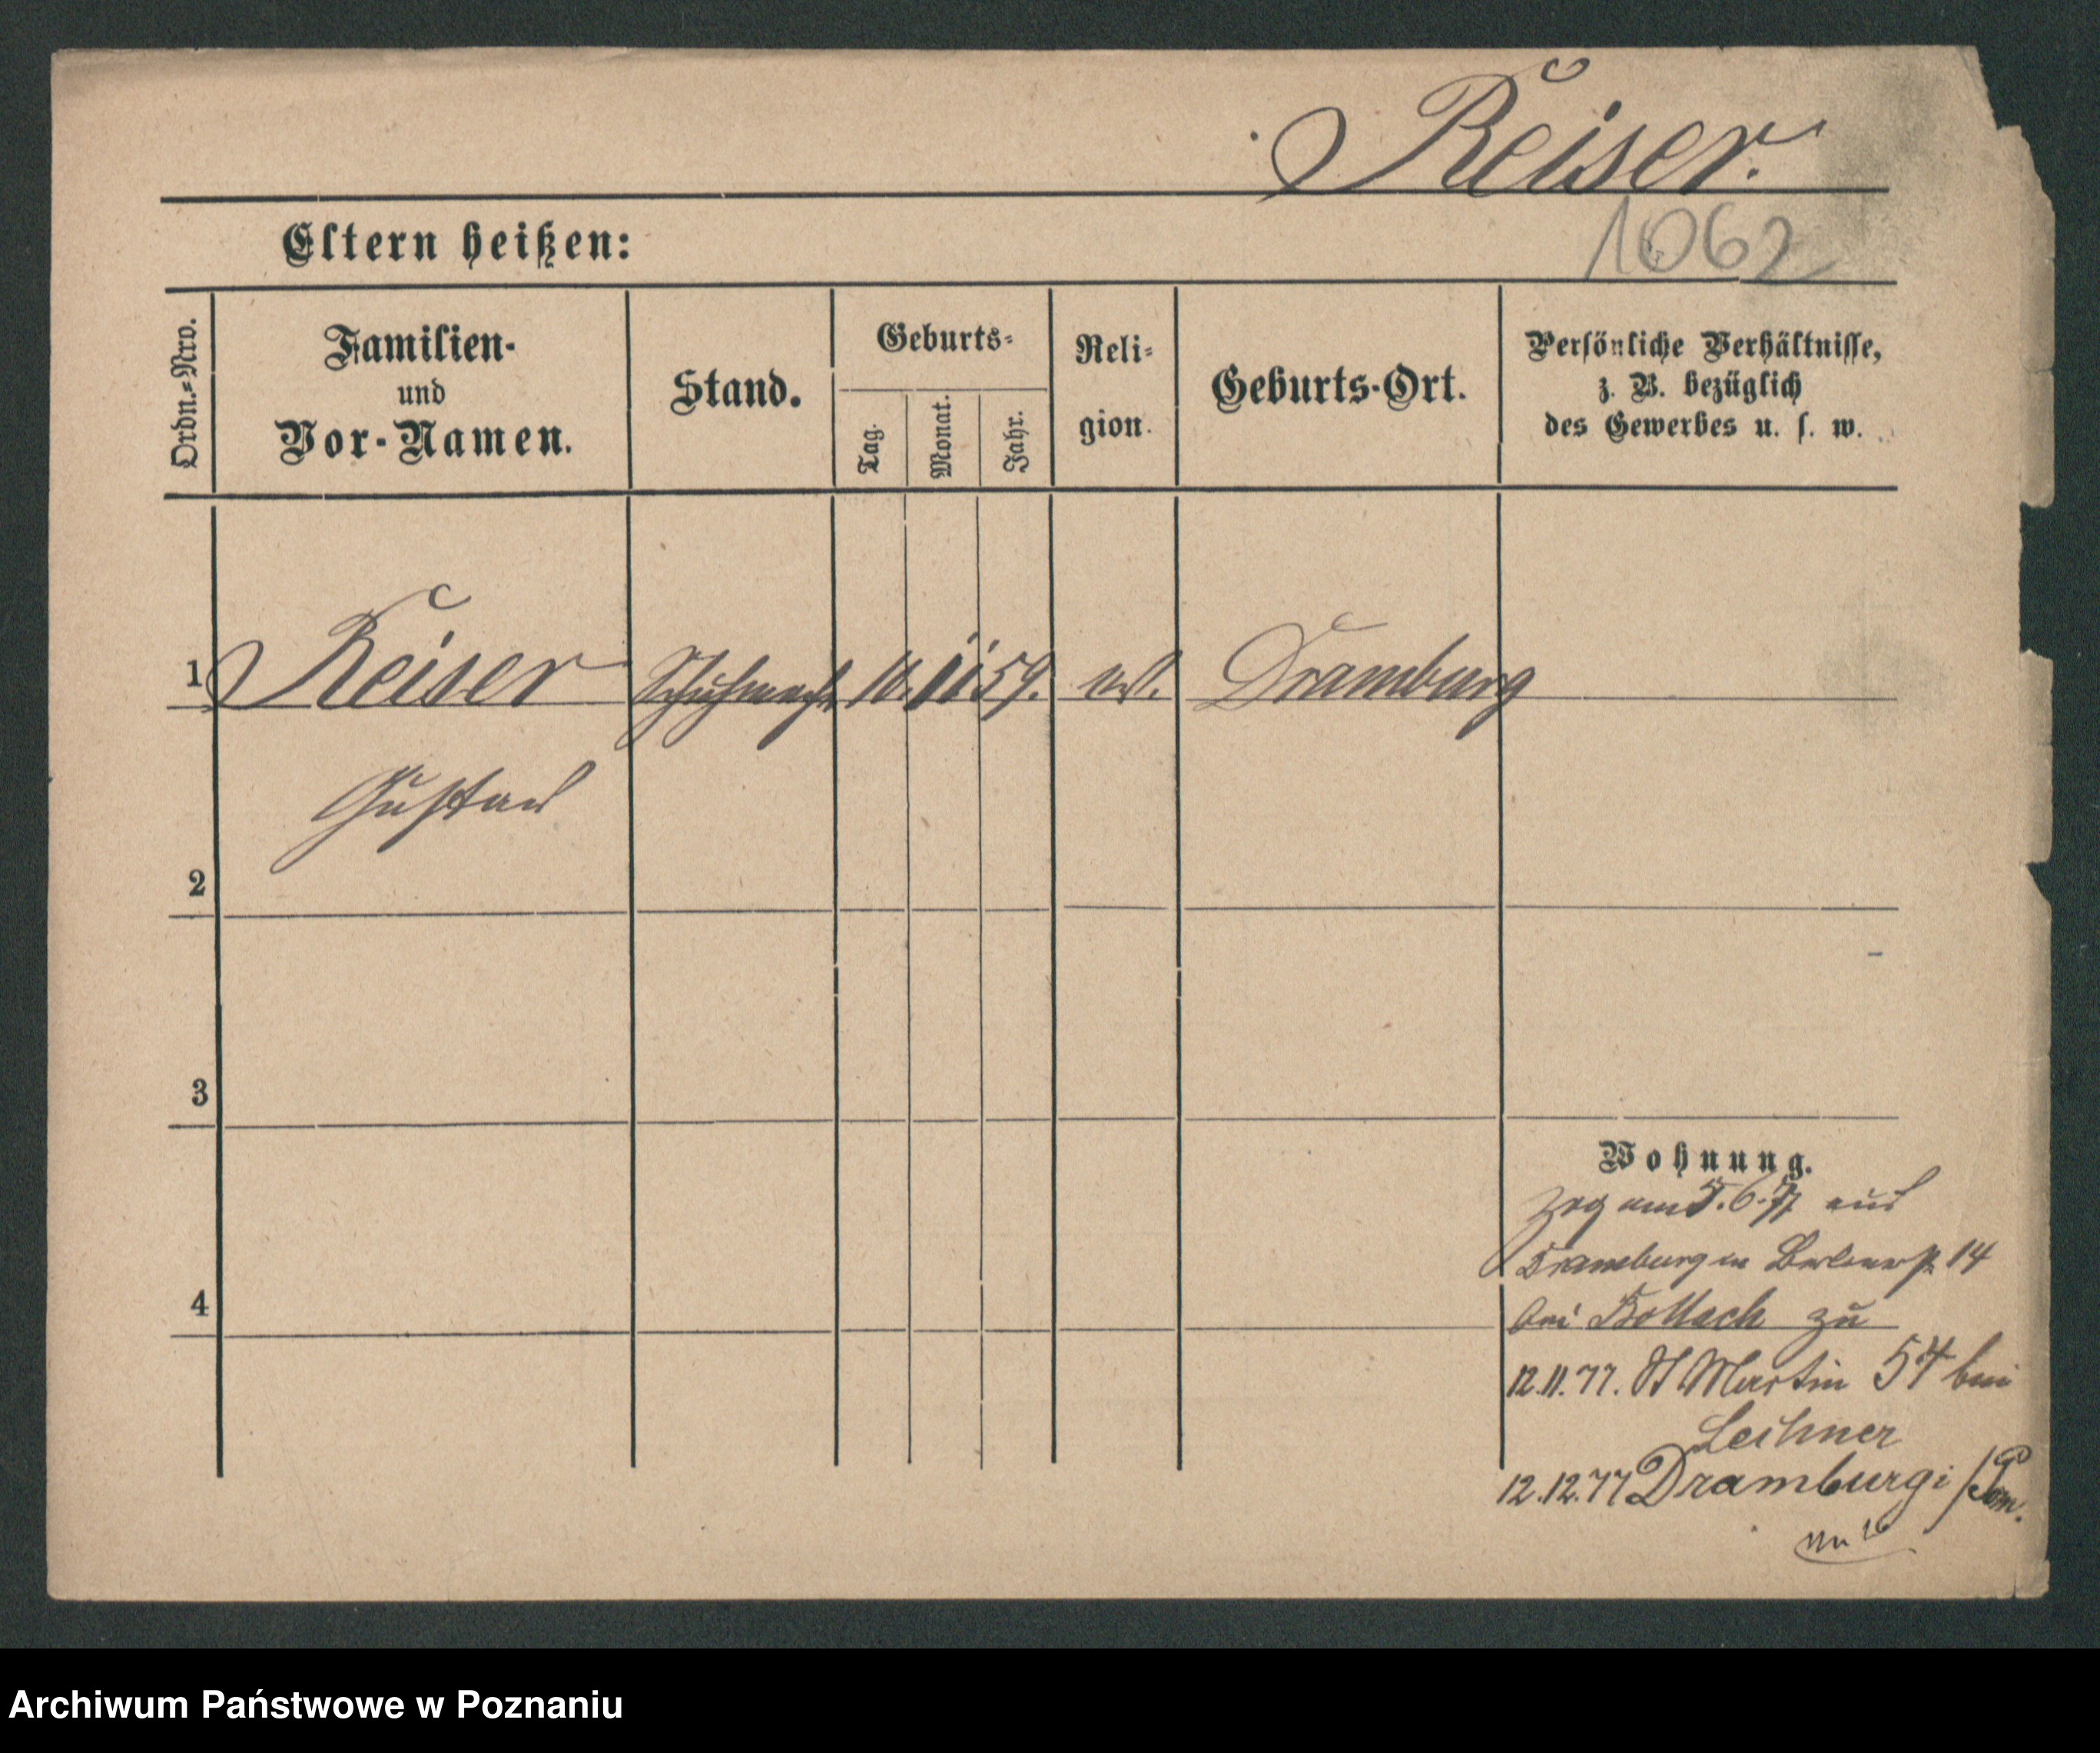 Reiser.
1062
Eltern heißen:
Ordn.=Nro.
Familien-
und
Vor-Namen.
Stand.
Geburts=
Tag.
Monat.
Jahr.
Reli=
gion.
Geburts-Ort.
Persönliche Verhältnisse,
z. B. bezüglich
des Gewerbes u. s. w.
1 Reiser Schuhmach 11 59. Dramburg
Gustav
2
3
4
Wohnung.
Zog am 5.6.77 aus
Dramburg 14
bei zu
12.11.77. St Martin 54 bei
12.12.77 Dramburg i/Pom.
Archiwum Państwowe w Poznaniu